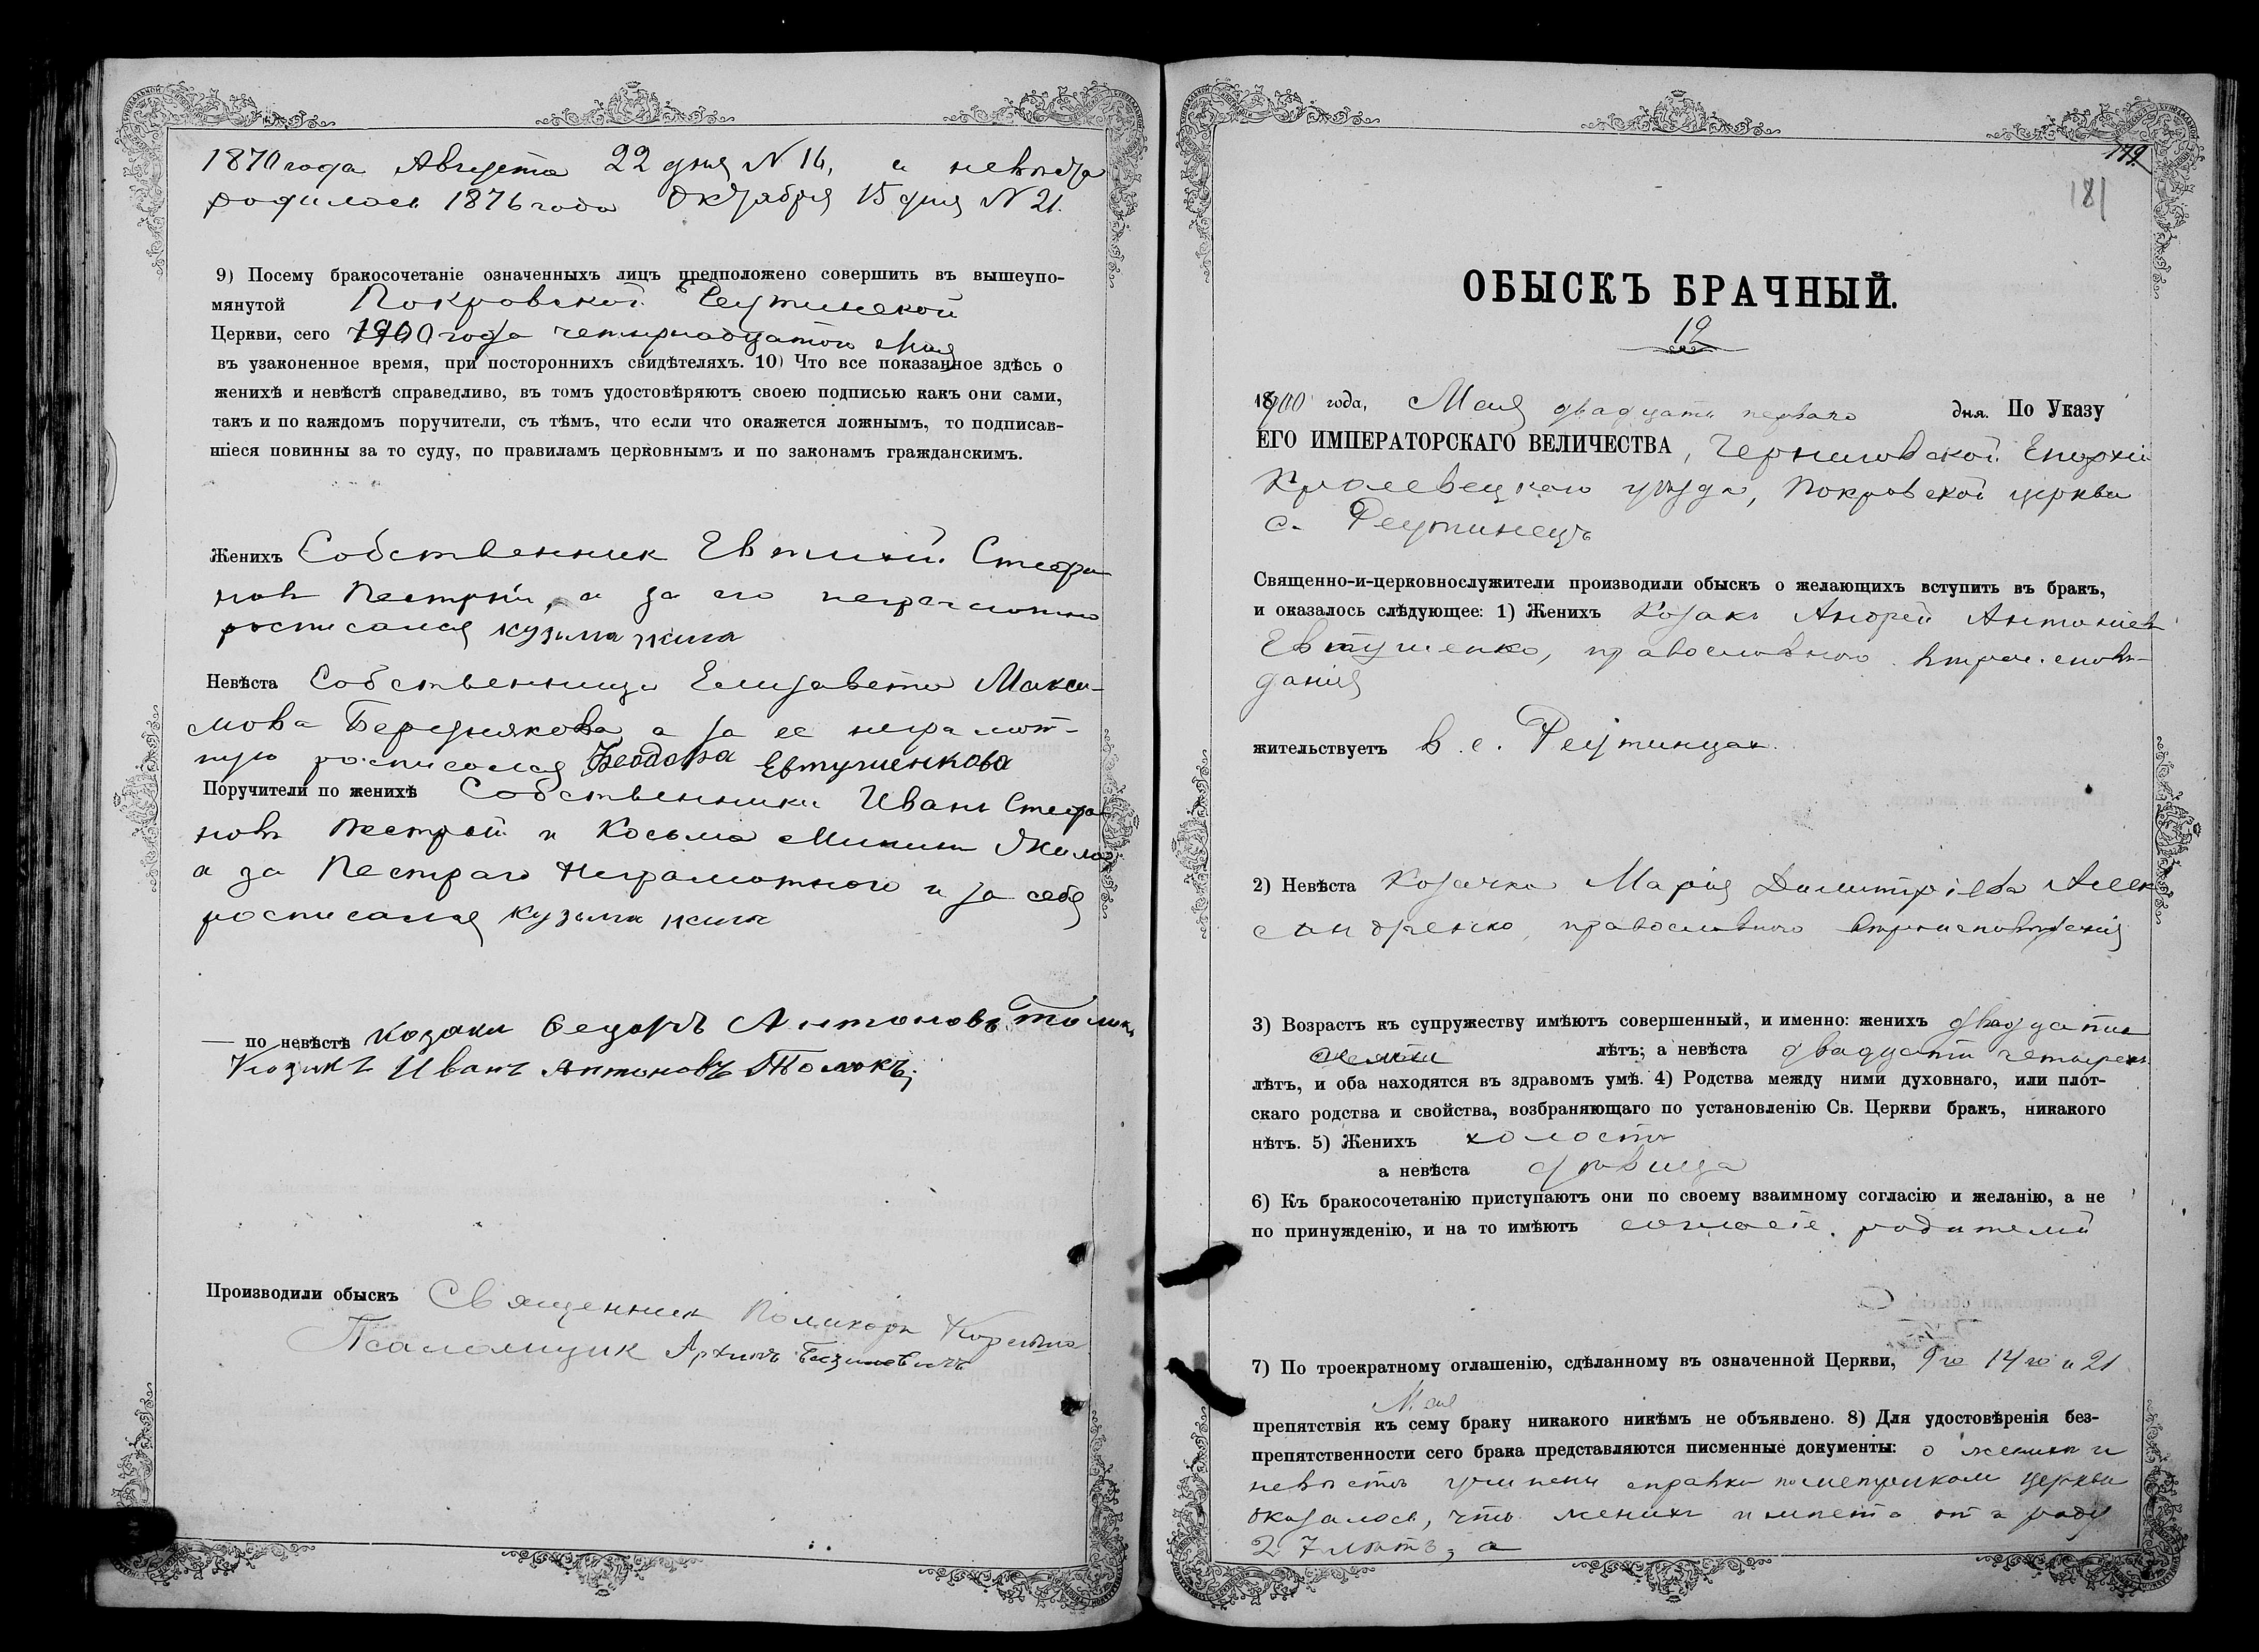 1870 года Августа 22 дня N 14, а невѣста
родилась 1876 года Октября 15 дня N 21.
9) Посему бракосочетаніе означенныхъ лицъ предположено совершить въ вышеупо-
мянутой Покровской Реутинской
Церкви, сего 1900 года четырнадцатого Мая
въ узаконенное время, при постороннихъ свидѣтеляхъ. 10) Что все показанное здѣсь о
женихѣ и невѣстѣ справедливо, въ томъ удостовѣряютъ своею подписью какъ они сами,
такъ и по каждомъ поручители, съ тѣмъ, что если что окажется ложнымъ, то подписав-
шіеся повинны за то суду, по правиламъ церковнымъ и по законамъ гражданскимъ.
Женихъ Собственник Евтихій Стефа
новъ Пестрый, а за его неграмотно
росписался Кузьма
Невѣста Собственница Елизавета Макси-
мова Береднякова а за ее неграмот-
ную росписался Ѳеодора Евтушенкова
Поручители по женихѣ Собственники Иванъ Стефа
новъ Пестрый и Косьма Минин
а за Пестраго Неграмотного и за себя
росписался Кузьма
— по невѣстѣ козаки Федоръ Антоновъ Толмокъ
Козакъ Иванъ Антоновъ Толмокъ;
Производили обыскъ Священник Поликарп
Псаломщик Архипъ
179
181
ОБЫСКЪ БРАЧНЫЙ.
12
1900 года, Мая двадцать перваго дня. По Указу
ЕГО ИМПЕРАТОРСКАГО ВЕЛИЧЕСТВА, Черниговской Епархіи
Кролевецкаго уѣзда, Покровской церкви
с. Реутинецъ
Священно-и-церковнослужители производили обыскъ о желающихъ вступить въ бракъ,
и оказалось слѣдующее: 1) Женихъ Козакъ Андрей Антоніевъ
Евтушенко, православного вѣроисповѣ-
данія
жительствуетъ в с. Реутинцах.
2) Невѣста Козачка Марія Димитріева Алек
сандренко, православного вѣроисповѣданія
3) Возрастъ къ супружеству имѣютъ совершенный, и именно: женихъ двадцати
семи лѣтъ; а невѣста двадцати четырехъ
лѣтъ, и оба находятся въ здравомъ умѣ. 4) Родства между ними духовнаго, или плот-
скаго родства и свойства, возбраняющаго по установленію Св. Церкви бракъ, никакого
нѣтъ. 5) Женихъ холостъ
а невѣста дѣвица
6) Къ бракосочетанію приступаютъ они по своему взаимному согласію и желанію, а не
по принужденію, и на то имѣютъ согласіе родителей
7) По троекратному оглашенію, сдѣланному въ означенной Церкви, 9го 14го и 21
Мая
препятствія къ сему браку никакого никѣмъ не объявлено. 8) Для удостовѣренія без-
препятственности сего брака представляются писменные документы: о женихѣ и
невѣстѣ учинена справка по метрикам церкви
оказалось, что женихъ имѣетъ отъ роду
27 лѣтъ, а